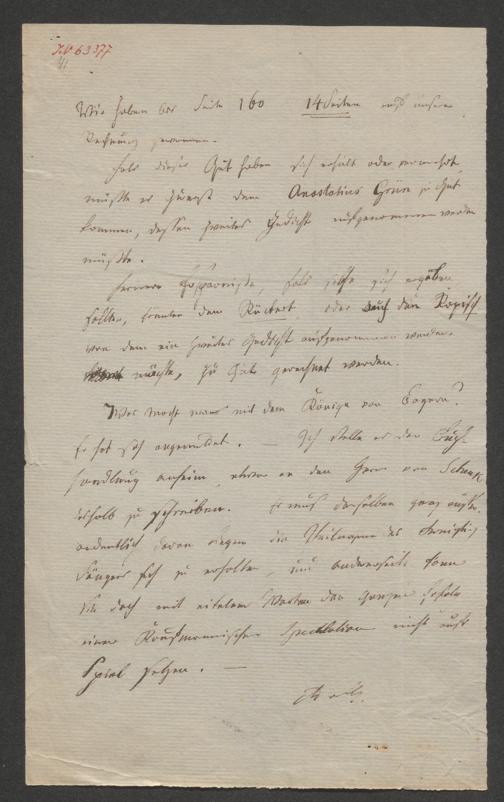 I.N. 63377
Wir haben bis Seite 160 14 Seiten nach unserer
Rechnung gewonnen.
Falls dieses Gut haben sich erhält oder vermehrt,
müßte es zuerst dem Anastatius Grün zu Gut
kommen, dessen zweites Gedicht aufgenommen werden
müßte.
Fernere Ersparnisse, falls solche sich ergeben
sollten, könnten dem Rückert oder auch dem Kopisch
von dem ein zweites Gedicht aufgenommen werden
müßte, zu Gut gerechnet werden.
Was macht man mit dem Könige von Bayern?
Er hat sich angemeldet. — Ich stelle es der Buch-
handlung anheim, etwa an den Herrn von Schenk
deshalb zu schreiben. Es muß derselben ganz außer-
ordentlich daran liegen die Theilnahme des
Sängers sich zu erhalten, und andererseits kann
sie doch mit eitelem Warten den ganzen Erfolg
einer Kaufmännischen Speculation nicht aufs
Spiel setzen. —